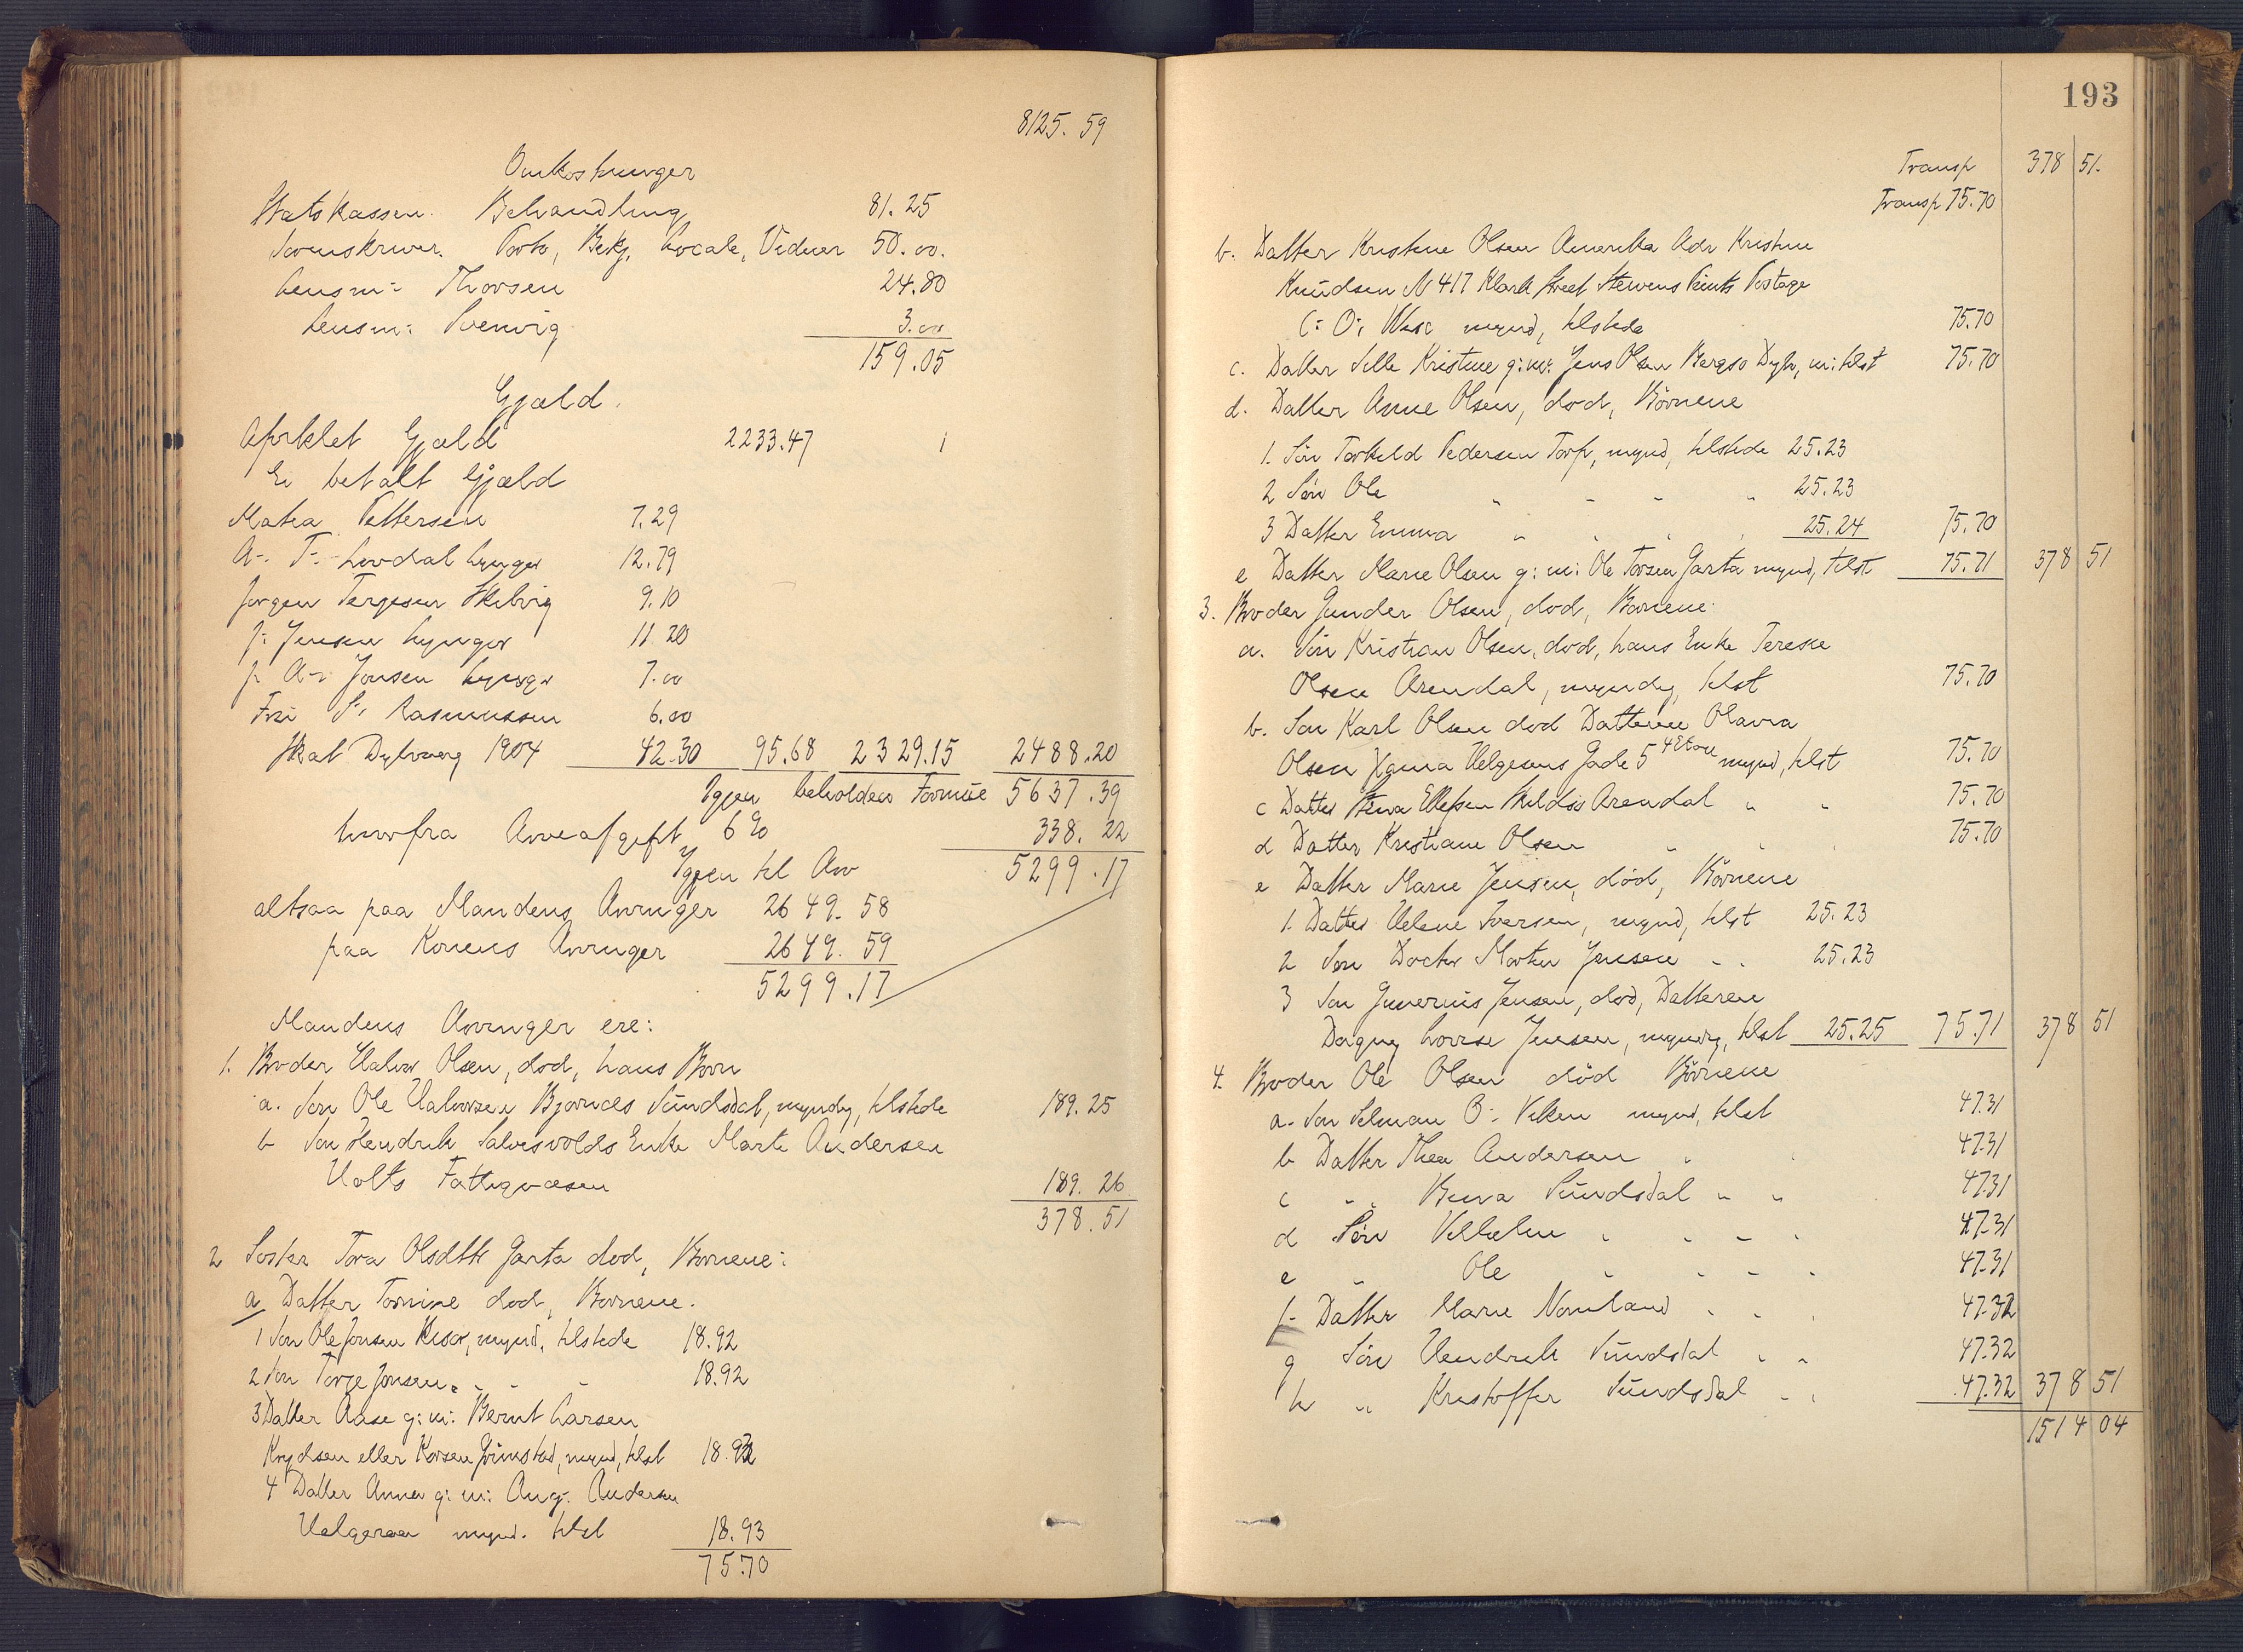 8125. 59
Omkostninger
Statskassen. Behandling 81.25
Sorenskriver. Porto, Bekj, Locale, Vidner 50.00.
Lensm: Thorsen 24.80
Lensm: 3.00
159.05
Gjæld.
Afviklet Gjæld 2233.47
Ei betalt Gjæld
Matea Pettersen 7.29
A. T. Lovdal Lyngør 12.79
Jørgen Terjesen 9.10
J: Jensen Lyngør 11.20
J. A. Jonsen Lyngør 7.00
S. Rasmussen 6.00
Skat Dybvaag 1904 42.30 95.68 2329.15 2488.20
Igjen beholden Formue 5637.39
herfra Arveafgift 6% 338.22
Igjen til Arv 5299.17
altsaa paa Mandens Arvinger 2649. 58
paa Konens Arvinger 2649. 59
5299.17
Mandens Arvinger ere:
1. Broder Halvor Olsen, død, hans Børn
a. Søn Ole Halvorsen Sundsdal, myndig, tilstede 189.25
b Søn Hendrik Salvesvolds Enke Marte Andersen
Holts Fattigvæsen 189. 26
378. 51
2 Søster Tora Olsdtr Garta død, Børnene:
a, Datter Tomine død, Børnene.
1 Søn Ole Jonsen Risør, mynd. tilstede 18.92
2 Søn Terje Jonsen " - - - 18.92
3 Datter Aase g: m: Bernt Larsen
Krydsen eller Korsen Grimstad, mynd, tilst 18.93
4 Datter Anna g: m: Aug. Andersen
mynd. tilst 18.93
75.70
193
Transp 378 51.
Transp 75.70
b. Datter Kristine Olsen Amerika Adr Kristine
Knudsen N 417 Klark Street Stewens Points Postage
C: O: Wisc mynd, tilstede 75.70
c. Datter Sille Kristine g: m: Jens Olsen Bergsø Dybv, m: tilst 75.70
d. Datter Anne Olsen, død, Børnene
1. Søn Torkild Pedersen Torp, mynd, tilstede 25.23
2 Søn Ole " - - " 25.23
3 Datter Emma " " " " 25.24 75.70
e Datter Marie Olsen g: m: Ole Torsen Garta mynd, tilst 75.71 378 51
3. Broder Gunder Olsen, død, Børnene.
a. Søn Kristian Olsen, død, hans Enke Terese
Olsen Arendal, myndig, tilst 75.70
b. Søn Karl Olsen død Datteren Olavia
Olsen Helgesens Gade 5 4 Etage mynd, tilst 75.70
c Datter Ellefsen Arendal " " 75.70
d Datter Kristiane Olsen " " " 75.70
e Datter Marie Jensen, død, Børnene
1. Datter Helene Iversen, mynd, tilst 25.23
2 Søn Doctor Morten Jensen - - 25.23
3 Søn Jensen, død, Datteren
Dagny Lovise Jensen, myndig, tilst 25.25 75.71 378 51
4. Broder Ole Olsen død Børnene
a. Søn Selman O. Viken mynd, tilst 47.31
b Datter Thea Andersen " " 47.31
c " " Sundsdal " " 47.31
d Søn Vilhelm " " - " 47.31
e " Ole " " - - " 47.31
f. Datter Marie Nomland " " " 47.32
g Søn Hendrik Sundsdal " " 47.32
h " Kristoffer Sundsdal - " 47.32 378 51
1514 04